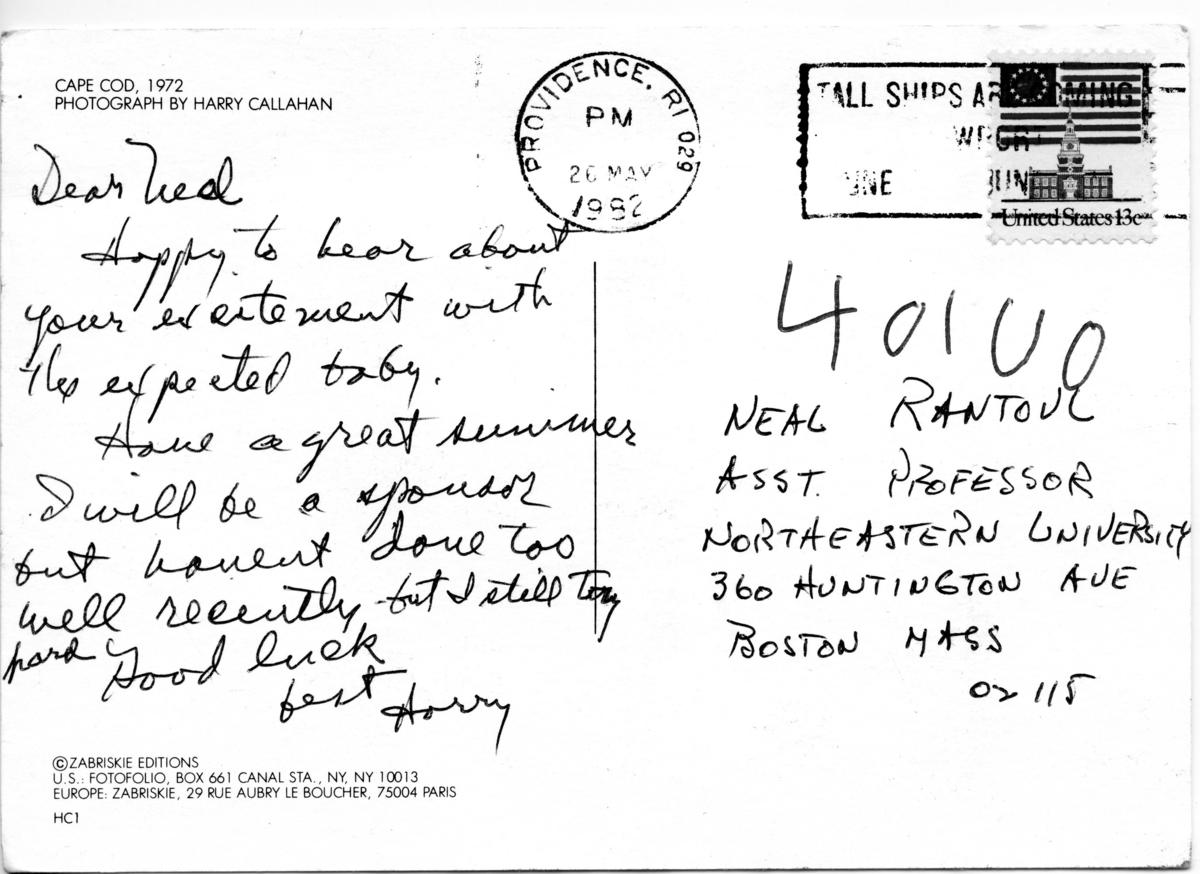 CAPE COD, 1972
PHOTOGRAPH BY HARRY CALLAHAN
PROVIDENCE, RI 029
PM
26 MAY
1982
TALL SHIPS AR COMING
WPORT
UNE JUN
United States 13c
Dear Neal
Happy to hear about
your excitement with
the expected baby.
Have a great summer
I will be a sponsor
but havent done too
well recently but I still try
hard
Good luck
best Harry
40100
NEAL RANTOUL
ASST. PROFESSOR
NORTHEASTERN UNIVERSITY
360 HUNTINGTON AVE
BOSTON MASS
02115
©ZABRISKIE EDITIONS
U.S.: FOTOFOLIO, BOX 661 CANAL STA., NY, NY 10013
EUROPE: ZABRISKIE, 29 RUE AUBRY LE BOUCHER, 75004 PARIS
HC1